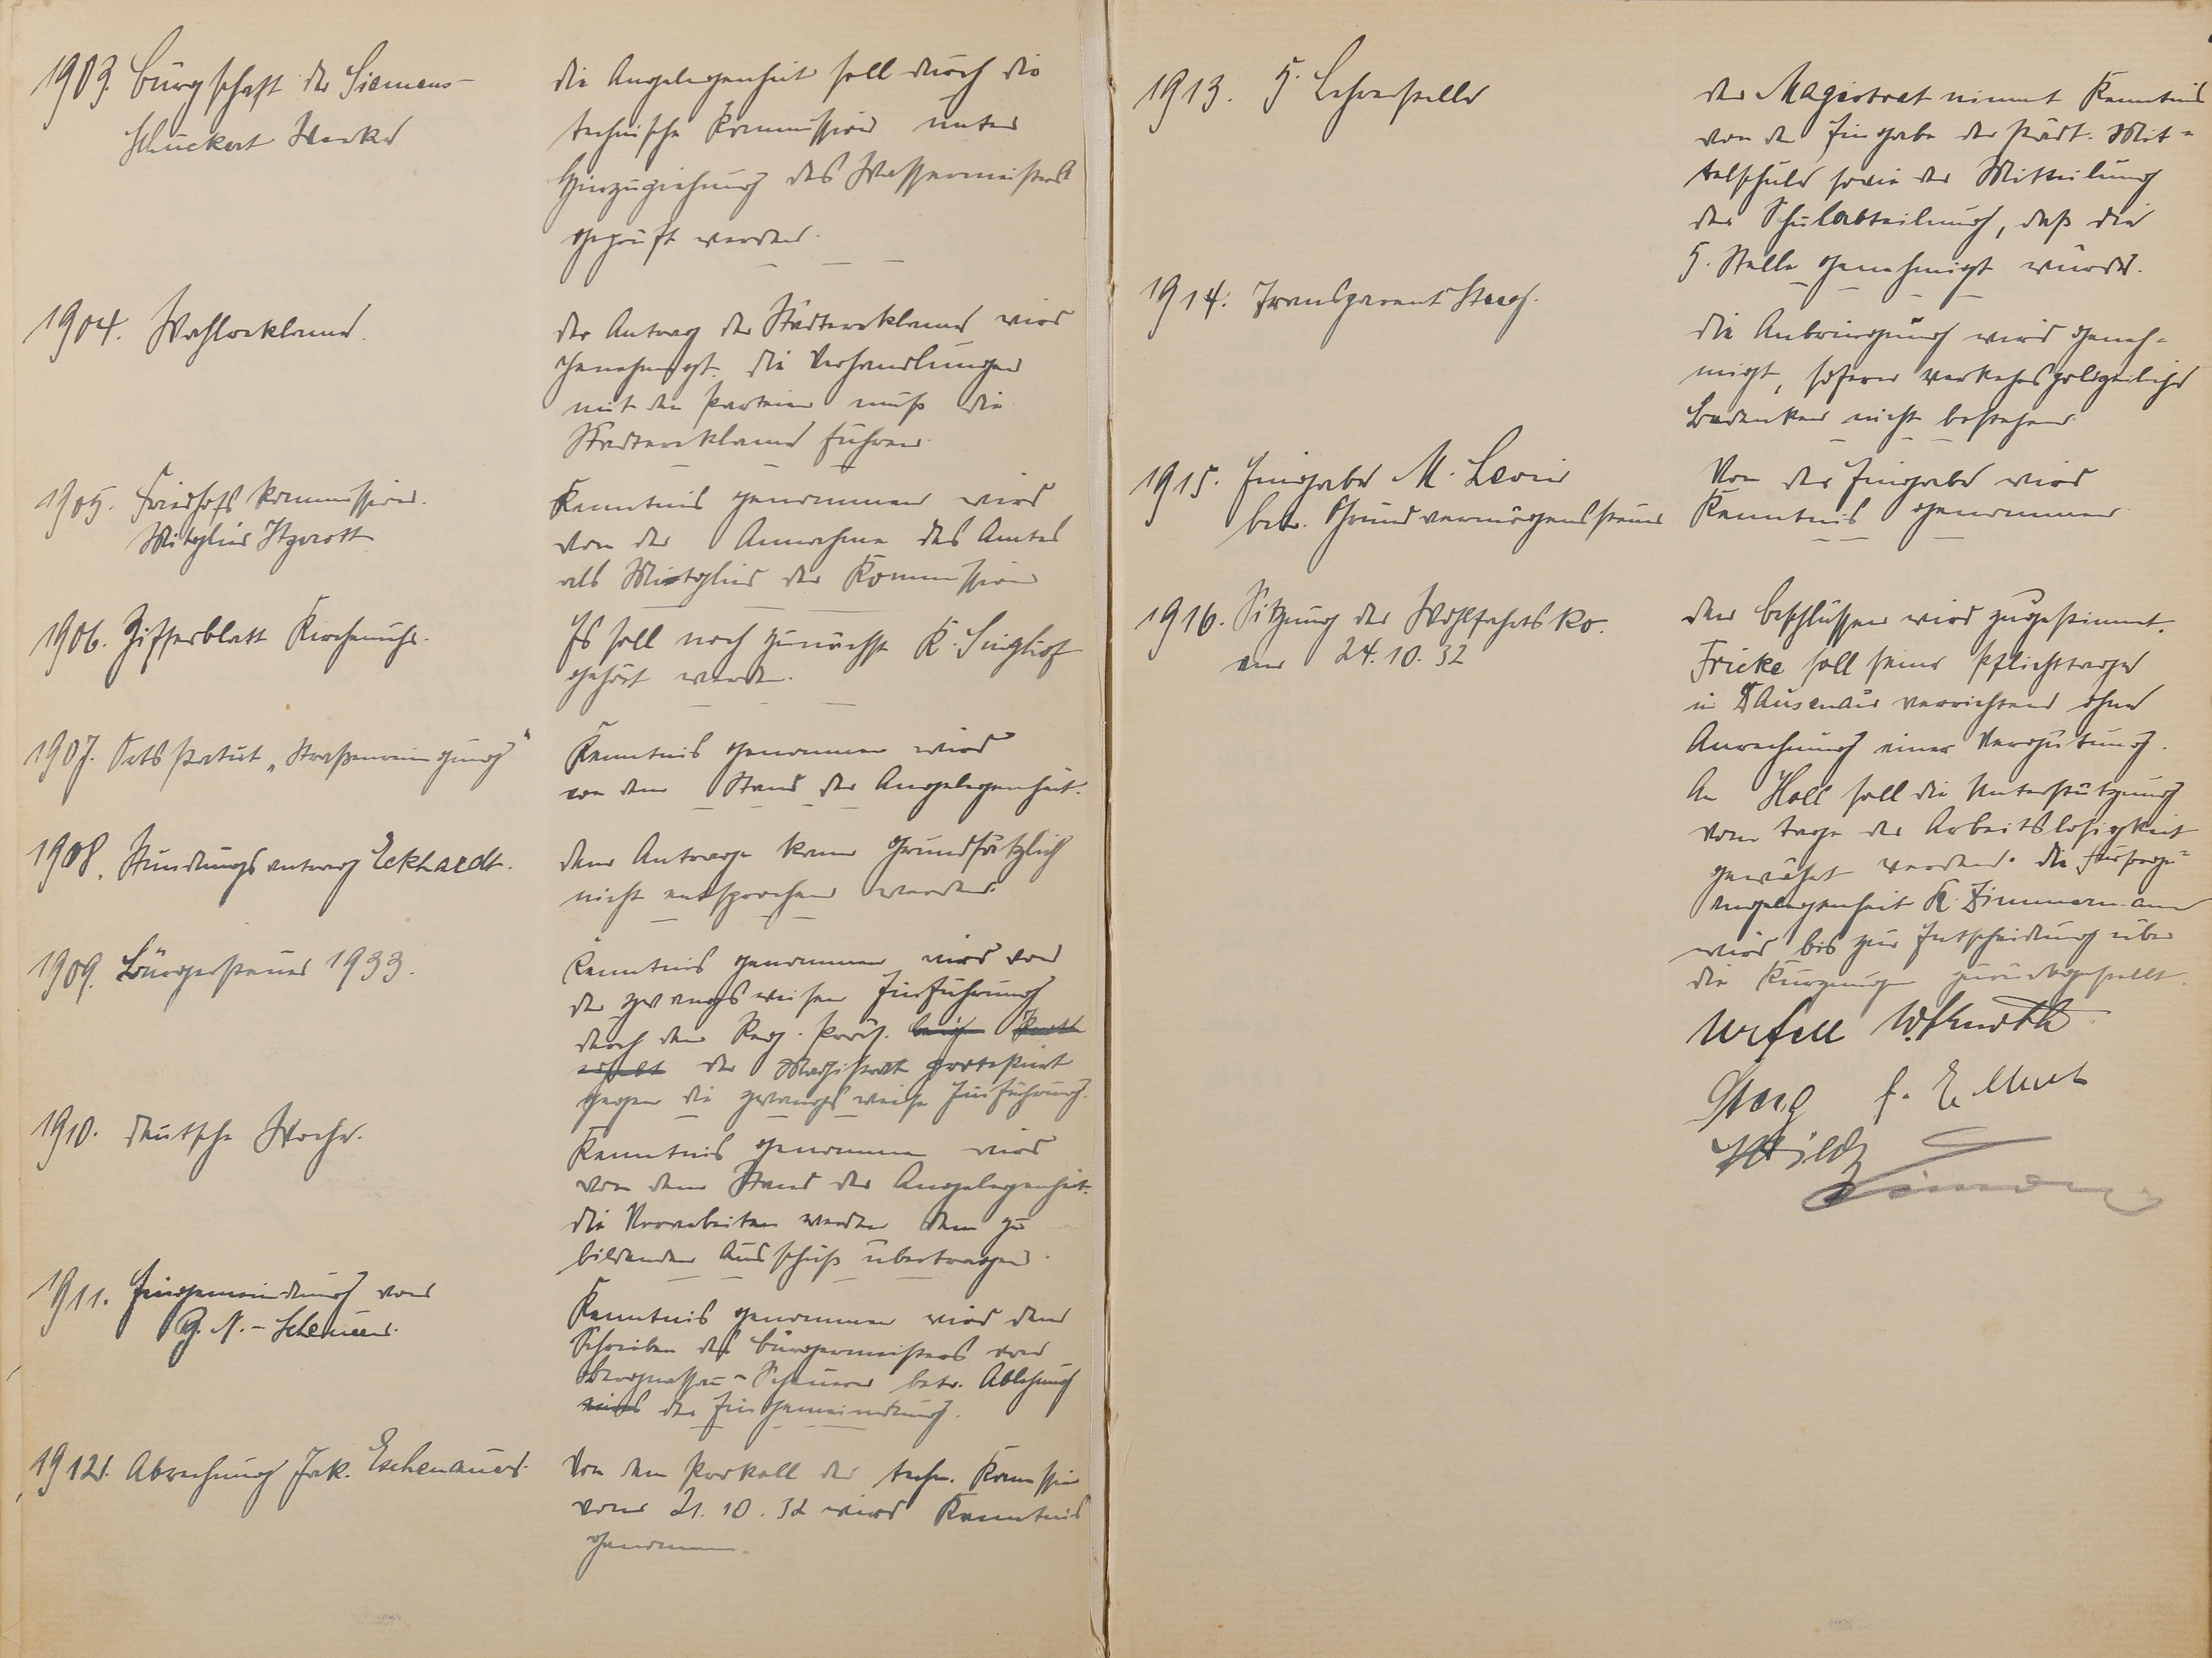 1903. Bürgschaft der Siemens-
Schuckert Werke
die Angelegenheit soll durch die
technische Kommission unter
Hinzuziehung des Wassermeisters
geprüft werden.
1904. Wahlreklame.
der Antrag der Städtereklame wird
genehmigt. die Verhandlungen
mit den Parteien muß die
Städtereklame führen.
1905. Friedhofskommission.
Mitglied
Kenntnis genommen wird
von der Annahme des Amtes
als Mitglied der Kommission
1906. Zifferblatt Kirchenuhr.
Es soll noch zunächst K. Singhof
gehört werden.
1907. Ortsstatut „Straßenreinigung"
Kenntnis genommen wird
von dem Stand der Angelegenheit.
1908. Stundungsantrag Eckhardt.
dem Antrage kann grundsätzlich
nicht entsprochen werden.
1909. Bürgersteuer 1933.
Kenntnis genommen wird von
der zwangsweisen Einführung
durch den Reg. Präs.
der Magistrat protestiert
gegen die zwangsweise Einführung.
1910. deutsche Woche.
Kenntnis genommen wird
von dem Stand der Angelegenheit.
die Vorarbeiten werden dem zu
bildenden Ausschuß übertragen.
1911. Eingemeindung von
B. N.-Scheuern.
Kenntnis genommen wird dem
Schreiben des Bürgermeisters von
Bergnassau-Scheuern betr. Ablehnung
der Eingemeindung.
1912. Abrechnung Jak. Eschenauer.
Von dem Protokoll der techn. Kommission
vom 21.10.32 wird Kenntnis
genommen.
1913. 5. Lehrerstelle
der Magistrat nimmt Kenntnis
von der Eingabe der städt. Mit-
telschule sowie der Mitteilung
der Schulabteilung, daß die
5. Stelle genehmigt würde.
1914. Transparent Staag.
die Anbringung wird geneh-
migt, sofern verkehrspolizeiliche
Bedenken nicht bestehen.
1915. Eingabe M. Levin
betr. Grundvermögenssteuer
Von der Eingabe wird
Kenntnis genommen.
1916. Sitzung der Wohlfahrtsko.
vom 24.10.32
den Beschlüssen wird zugestimmt.
Fricke soll seine Pflichttage
in Dausenau verrichten ohne
Anrechnung einer Vergütung.
An Holl soll die Unterstützung
vom Tage der Arbeitslosigkeit
gewährt werden. die Fürsorge-
angelegenheit K. Zimmermann
wird bis zur Entscheidung über
die Kürzung zurückgestellt.